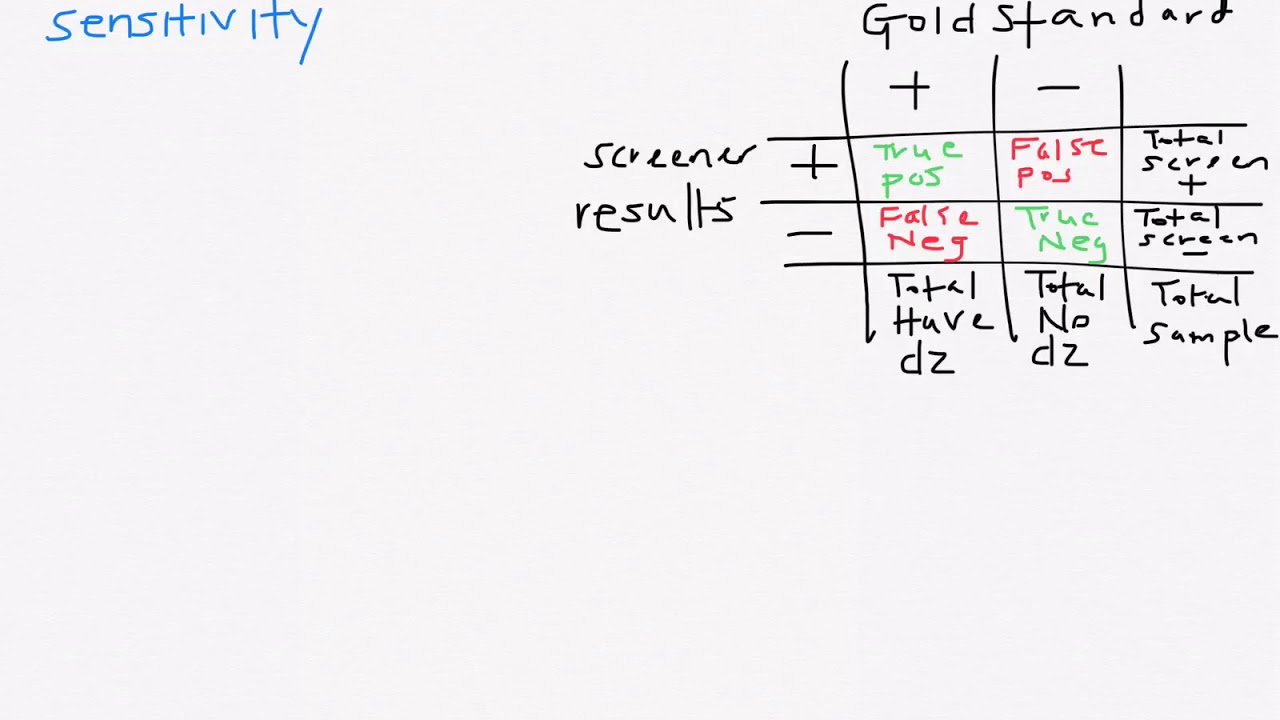 sensitivity
Gold Standard
+ −
screener results
+ True pos False pos Total screen +
− False Neg True Neg Total screen −
Total Have dz Total No dz Total sample